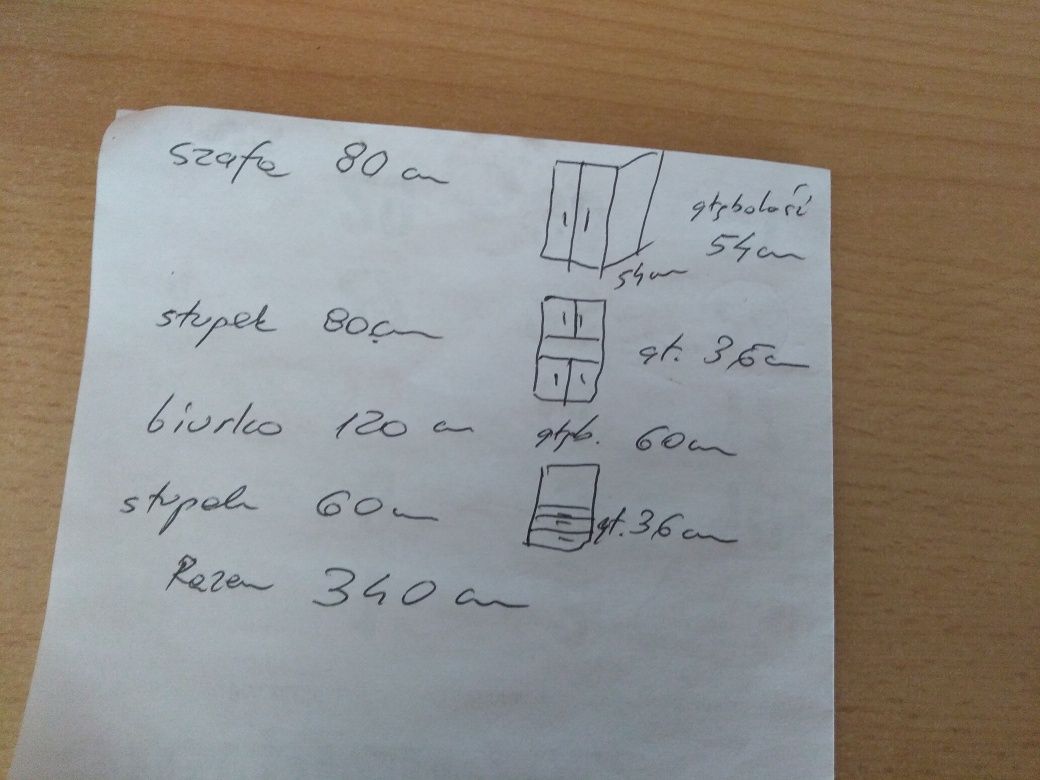 szafa 80 cm głębokość 54 cm
54 cm
słupek 80 cm gł. 36 cm
biurko 120 cm głęb. 60 cm
słupek 60 cm gł. 36 cm
Razem 340 cm